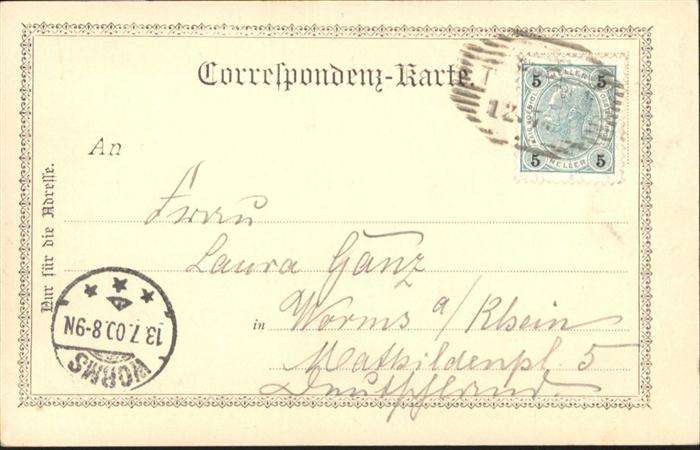 Correspondenz-Karte.
5 HELLER 5
5 HELLER 5
12.
An
Nur für die Adresse.
Frau
Laura Ganz
in Worms a/Rhein
Mathildenpl. 5
Deutschland.
WORMS
13.7.00.8-9N